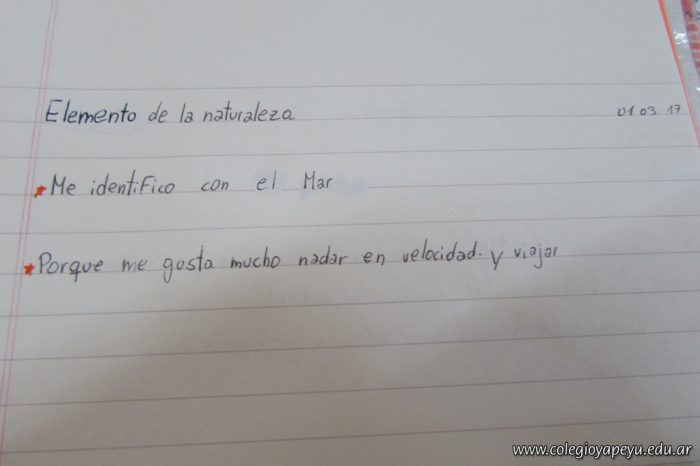 Elemento de la naturaleza 01 03 17
★ Me identifico con el Mar
★ Porque me gusta mucho nadar en velocidad. y viajar
www.colegioyapeyu.edu.ar